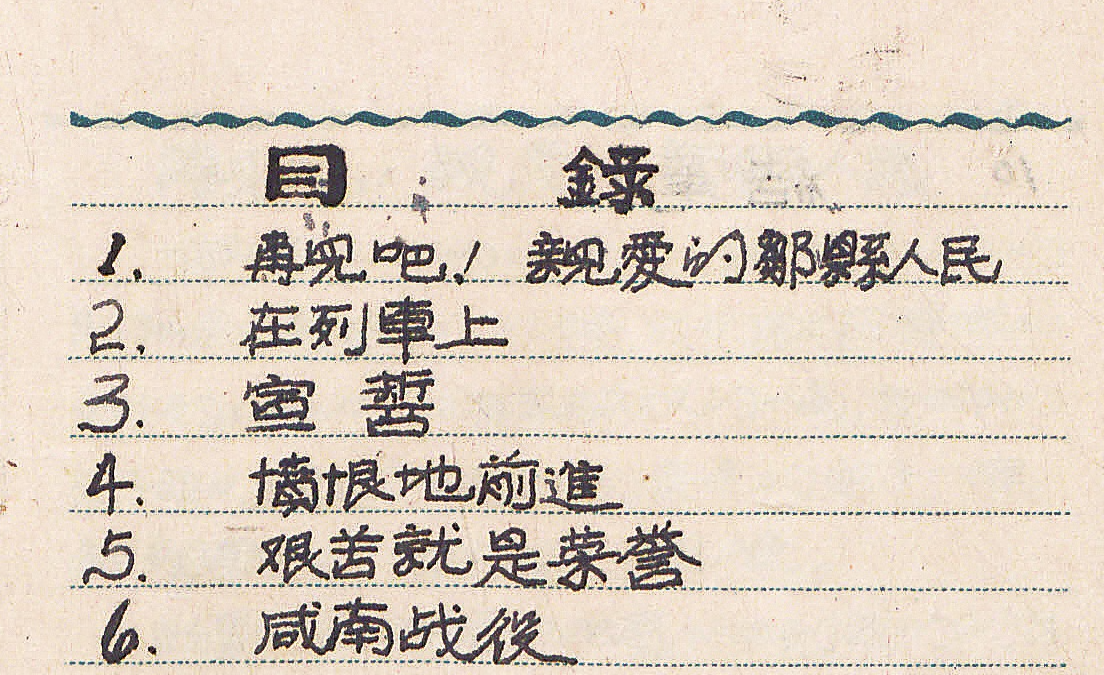 目 錄
1. 再见吧! 親爱的鄒縣人民
2. 在列車上
3. 宣誓
4. 憤恨地前進
5. 艰苦就是荣誉
6. 咸南战役